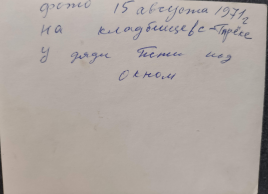 фото 15 августа 1971 г
на кладбище в с-
у дяди Пети под
окном